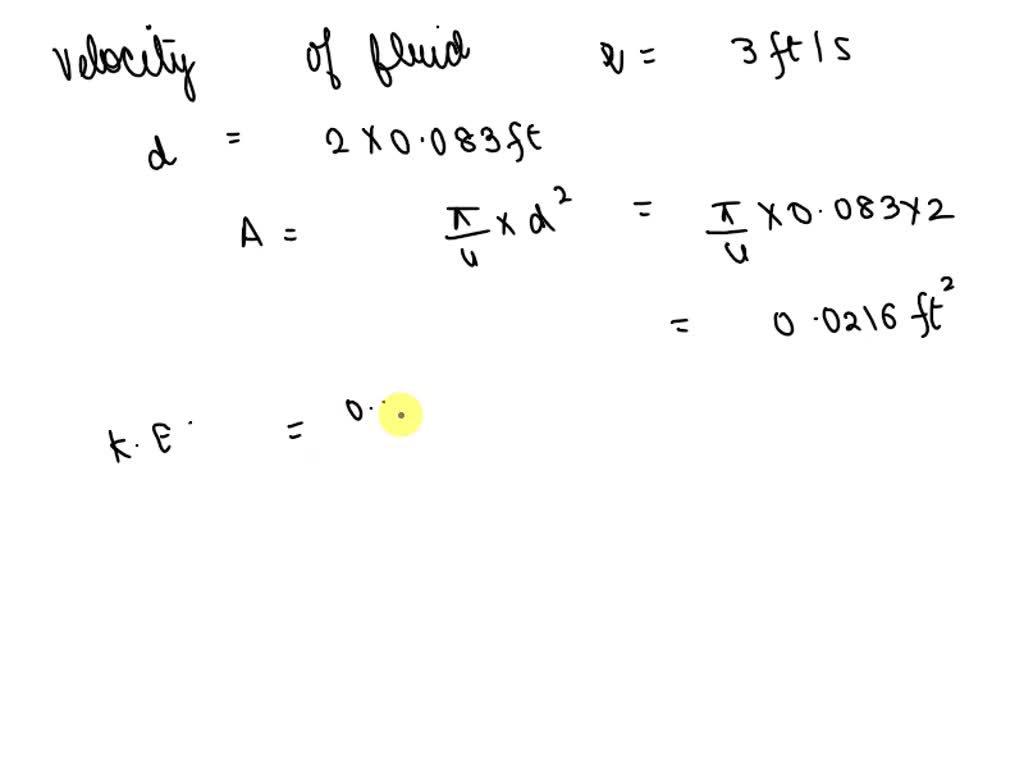 Velocity of fluid v = 3 ft/s
d = 2 × 0.083 ft
A = π/4 × d² = π/4 × 0.083 × 2
= 0.0216 ft²
K.E. = 0.